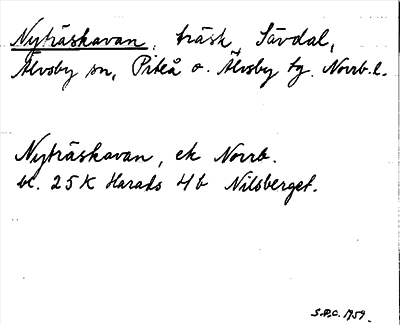 Nyträskavan, träsk, Sävdal,
Älvsby sn, Piteå o. Älvsby tg. Norrb. l.
Nyträskavan, ek Norrb.
bl. 25 K Harads 4b Nilsberget.
S.P.C. 1959.